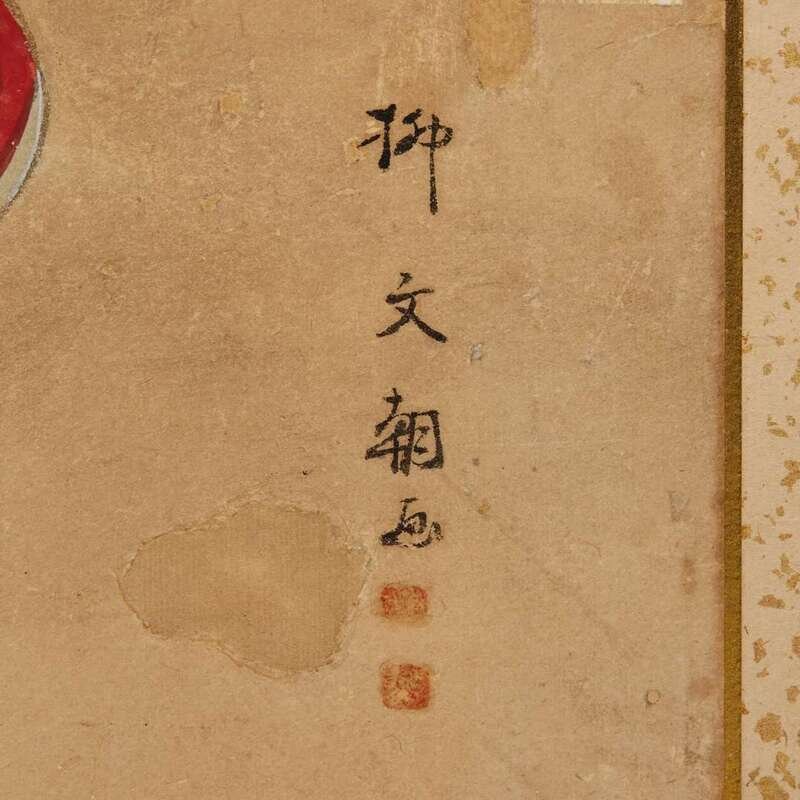 柳文朝画